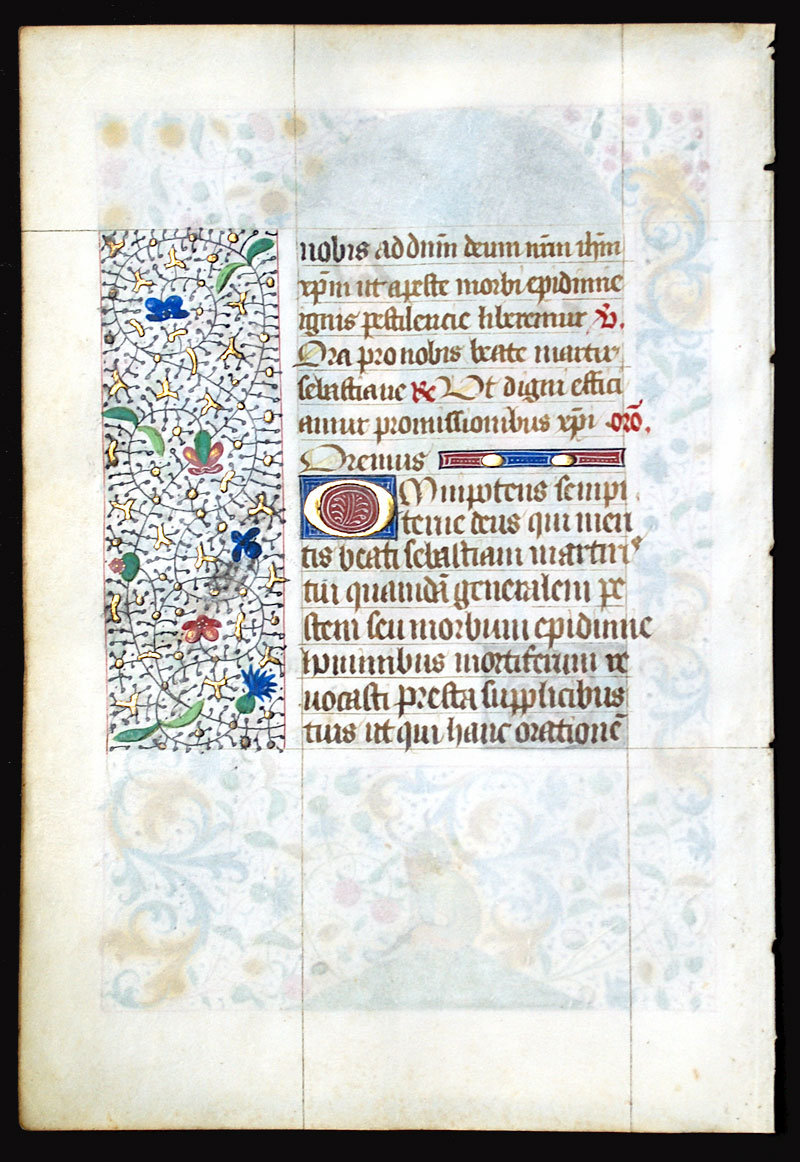 nobis ad dnm̄ deum nrm̄ ihm̄
xp̄m ut a peste morbi epidimie
ignis pestilencie liberemur ℣.
Ora pro nobis beate martir
sebastiane ℟ Ut digni effici
amur promissionibus xp̄i orō.
Oremus
Omnipotens sempi
terne deus qui meri
tis beati sebastiani martiris
tui quamdā generalem pe
stem seu morbum epidimie
hominibus mortiferum re
uocasti presta supplicibus
tuis ut qui hanc orationē